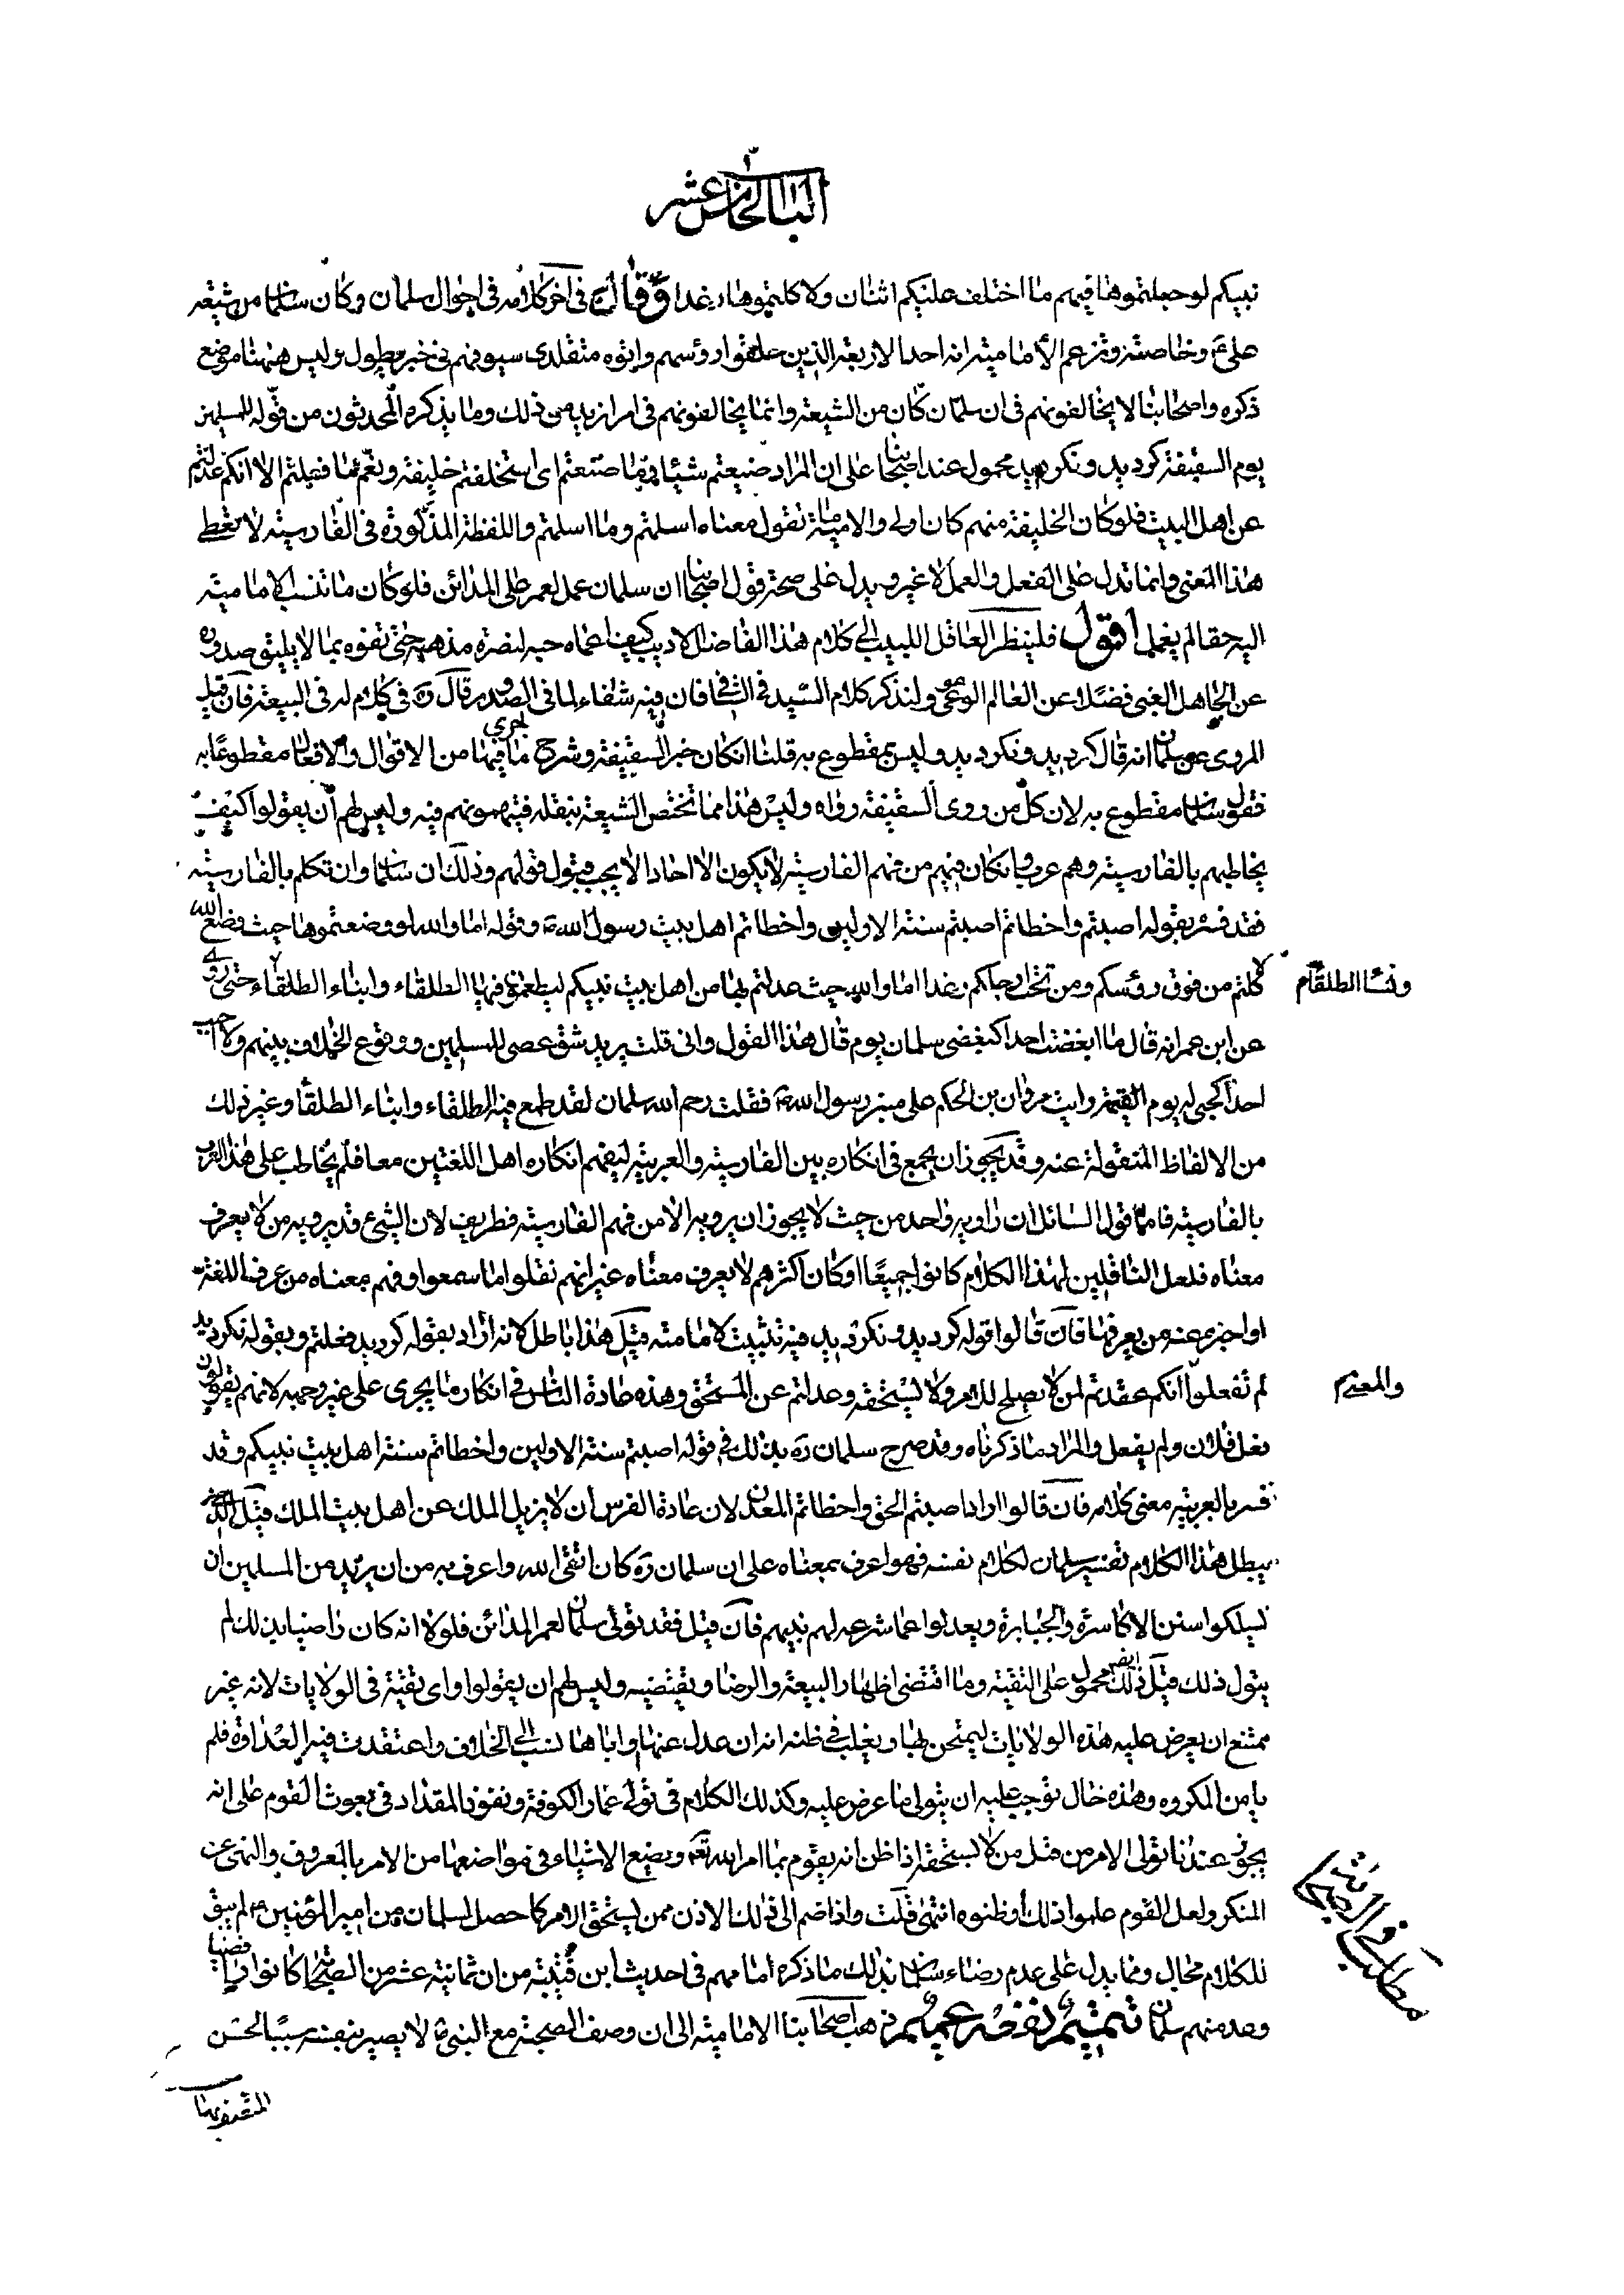 الباب الخامس عشر
نبيكم لو جعلتموها فيهم ما اختلف عليكم اثنان ولا كلتموها رغدا وقال في آخر كلامه في احوال سلمان وكان سلمان من شيعة
علي ع وخاصته وتزعم الإمامية انه احد الاربعة الذين حلقوا رؤسهم واتوه متقلدي سيوفهم في خبر يطول وليس هيهنا موضع
ذكره واصحابنا لا يخالفونهم في ان سلمان كان من الشيعة وانما يخالفونهم في امر ازيد من ذلك وما يذكره المحدثون من قوله للمسلمين
يوم السقيفة كرديد ونكرديد محمول عند اصحابنا على ان المراد صنعتم شيئا وما صنعتم اي استخلفتم خليفة ونعم ما فعلتم الا انكم عدلتم
عن اهل البيت فلو كان الخليفة منهم كان اولى والامامية تقول معناه اسلمتم وما اسلمتم واللفظة المذكورة في الفارسية لا تعطي
هذا المعنى وانما تدل على الفعل والعمل لا غير ويدل على صحة قول اصحابنا ان سلمان عمل لعمر على المدائن فلو كان ما تنسب الامامية
اليه حقا لم يعمل اقول فلينظر العاقل اللبيب الى كلام هذا الفاضل الاديب كيف اعماه حبه لنصرة مذهبه حتى تفوه بما لا يليق صدوره
عن الجاهل الغبي فضلا عن العالم الوعي ولنذكر كلام السيد في الشافي فان فيه شفاء لما في الصدور قال ره في كلام له في البيعة فان قيل
المروي عن سلمان انه قال كرديد ونكرديد وليس بمقطوع به قلنا ان كان خبر السقيفة وشرح ما جرى فيها من الاقوال والافعال مقطوعا به
فقول سلمان مقطوع به لان كل من روى السقيفة رواه وليس هذا مما تختص الشيعة بنقله فيتهمونهم فيه وليس لهم أن يقولوا كيف
يخاطبهم بالفارسية وهم عرب وان كان فيهم من فهم الفارسية لا يكون الا احادا لا يجب قبول قولهم وذلك ان سلمان وان تكلم بالفارسية
فقد فسره بقوله اصبتم واخطاتم اصبتم سنة الاولين واخطاتم اهل بيت رسول الله ص وقوله اما والله لو وضعتموها حيث وضع الله
لاكلتم من فوق رؤسكم ومن تحت ارجلكم رغدا اما والله حيث عدلتم بها من اهل بيت نبيكم ليطمعن فيها الطلقاء وابناء الطلقاء حتى روي
عن ابن عمر انه قال ما ابغضت احدا كبغضي سلمان يوم قال هذا القول واني قلت يريد شق عصى المسلمين ووقوع الخلاف بينهم ولا احب
احدا كحبي له يوم القيمة رايت مروان بن الحكم على منبر رسول الله ص فقلت رحم الله سلمان لقد طمع فيه الطلقاء وابناء الطلقاء وغير ذلك
من الالفاظ المنقولة عنه وقد يجوز ان يجمع في انكاره بين الفارسية والعربية ليفهم انكاره اهل اللغتين معا فلم يخاطب على هذا العرب
بالفارسية فاما قول السائل ان راويه واحد من حيث لا يجوز ان يرويه الا من فهم الفارسية فطريف لان الشيء قد يرويه من لا يعرف
معناه فلعل الناقلين لهذا الكلام كانوا جميعا او كان اكثرهم لا يعرف معناه غير انهم نقلوا ما سمعوا وفهم معناه من عرف اللغة
او اخبره عنه من يعرفها فان قالوا قوله كرديد ونكرديد فيه تثبيت لامامته قيل هذا باطل لانه أراد بقوله كرديد فعلتم وبقوله نكرديد
لم تفعلوا انكم عقدتم لمن لا يصلح للامر ولا يستحقه وعدلتم عن المستحق وهذه عادة الناس في انكار ما يجري على غير وجهه لانهم يقولون
فعل فلان ولم يفعل والمراد ما ذكرناه وقد صرح سلمان ره بذلك في قوله اصبتم سنة الاولين واخطاتم سنة اهل بيت نبيكم وقد
فسر بالعربية معنى كلامه فان قالوا اراد اصبتم الحق واخطاتم المعدن لان عادة الفرس ان لا يزيل الملك عن اهل بيت الملك قيل الذي
يبطل هذا الكلام تفسير سلمان لكلام نفسه فهو اعرف بمعناه على ان سلمان ره كان اتقى الله واعرف به من ان يريد من المسلمين ان
يسلكوا سنن الاكاسرة والجبابرة ويعدلوا عما شرعه لهم نبيهم فان قيل فقد تولى سلمان لعمر المدائن فلولا انه كان راضيا بذلك لم
يتول ذلك قيل ذلك ايضا محمول على التقية وما اقتضى اظهار البيعة والرضا ويقتضيه وليس لهم ان يقولوا واي تقية في الولايات لانه غير
ممتنع ان يعرض عليه هذه الولايات ليمتحن بها ويغلب في ظنه انه ان عدل عنها واباها نسب الى الخلاف واعتقدت فيه العداوة فلم
يامن المكروه وهذه حال توجب عليه ان يتولى ما عرض عليه وكذلك الكلام في تولي عمار الكوفة ونفوذ المقداد في بعوث القوم على انه
يجوز عندنا تولي الامر من قبل من لا يستحقه اذا ظن انه يقوم بما امر الله تعالى ويضع الاشياء في مواضعها من الامر بالمعروف والنهي عن
المنكر ولعل القوم علموا ذلك أو ظنوه انتهى قلت واذا ضم الى ذلك الاذن ممن يستحق الامر كما حصل لسلمان من امير المؤمنين ع لم يبق
للكلام مجال ومما يدل على عدم رضاء سلمان بذلك ما ذكره امامهم في احديث ابن قتيبة من ان ثمانية عشر من الصحابة كانوا رافضيا
وعد منهم سلمان تتميم نفعه عميم ذهب اصحابنا الامامية الى ان وصف الصحبة مع النبي ص لا يصير بنفسه سببا لحسن